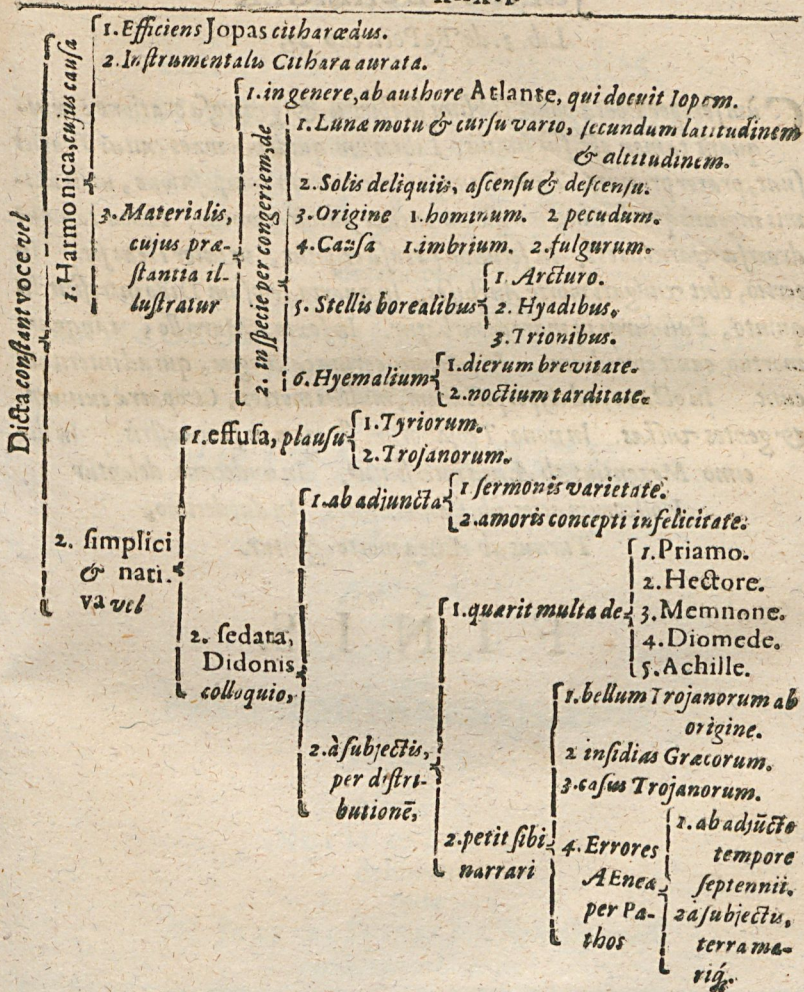 Dicta constant voce vel
1. Harmonica, cujus causa
1. Efficiens Jopas citharædus.
2. Instrumentalis Cithara aurata.
3. Materialis,
cujus præ-
stantia il-
lustratur
1. in genere, ab authore Atlante, qui docuit Iopam.
2. in specie per congeriem, de
1. Lunæ motu & cursu vario, secundum latitudinem
& altitudinem.
2. Solis deliquiis, ascensu & descensu.
3. Origine 1. hominum. 2 pecudum.
4. Causa 1. imbrium. 2. fulgurum.
5. Stellis borealibus
1. Arcturo.
2. Hyadibus.
3. Trionibus.
6. Hyemalium
1. dierum brevitate.
2. noctium tarditate.
2. simplici
& nati-
va vel
1. effusa, plausu
1. Tyriorum.
2. Trojanorum.
2. sedata,
Didonis
colloquio,
1. ab adjuncta
1 sermonis varietate.
2. amoris concepti infelicitate.
2. à subjectis,
per distri-
butionē,
1. quærit multa de
1. Priamo.
2. Hectore.
3. Memnone.
4. Diomede.
5. Achille.
2. petit sibi
narrari
1. bellum Trojanorum ab
origine.
2 insidias Græcorum.
3. casus Trojanorum.
4. Errores
AEneæ
per Pa-
thos
1. ab adjūcto
tempore
septennii.
2 à subjectis,
terra ma-
riq́.